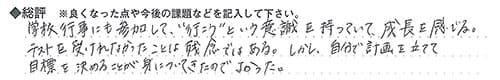 ◆総評 ※良くなった点や今後の課題などを記入して下さい。
学校行事にも参加して、“行こう”という意識を持っていて成長を感じる。
テストを受けれなかったことは残念ではある。しかし、自分で計画を立てて
目標を決めることが身についてきたのでよかった。